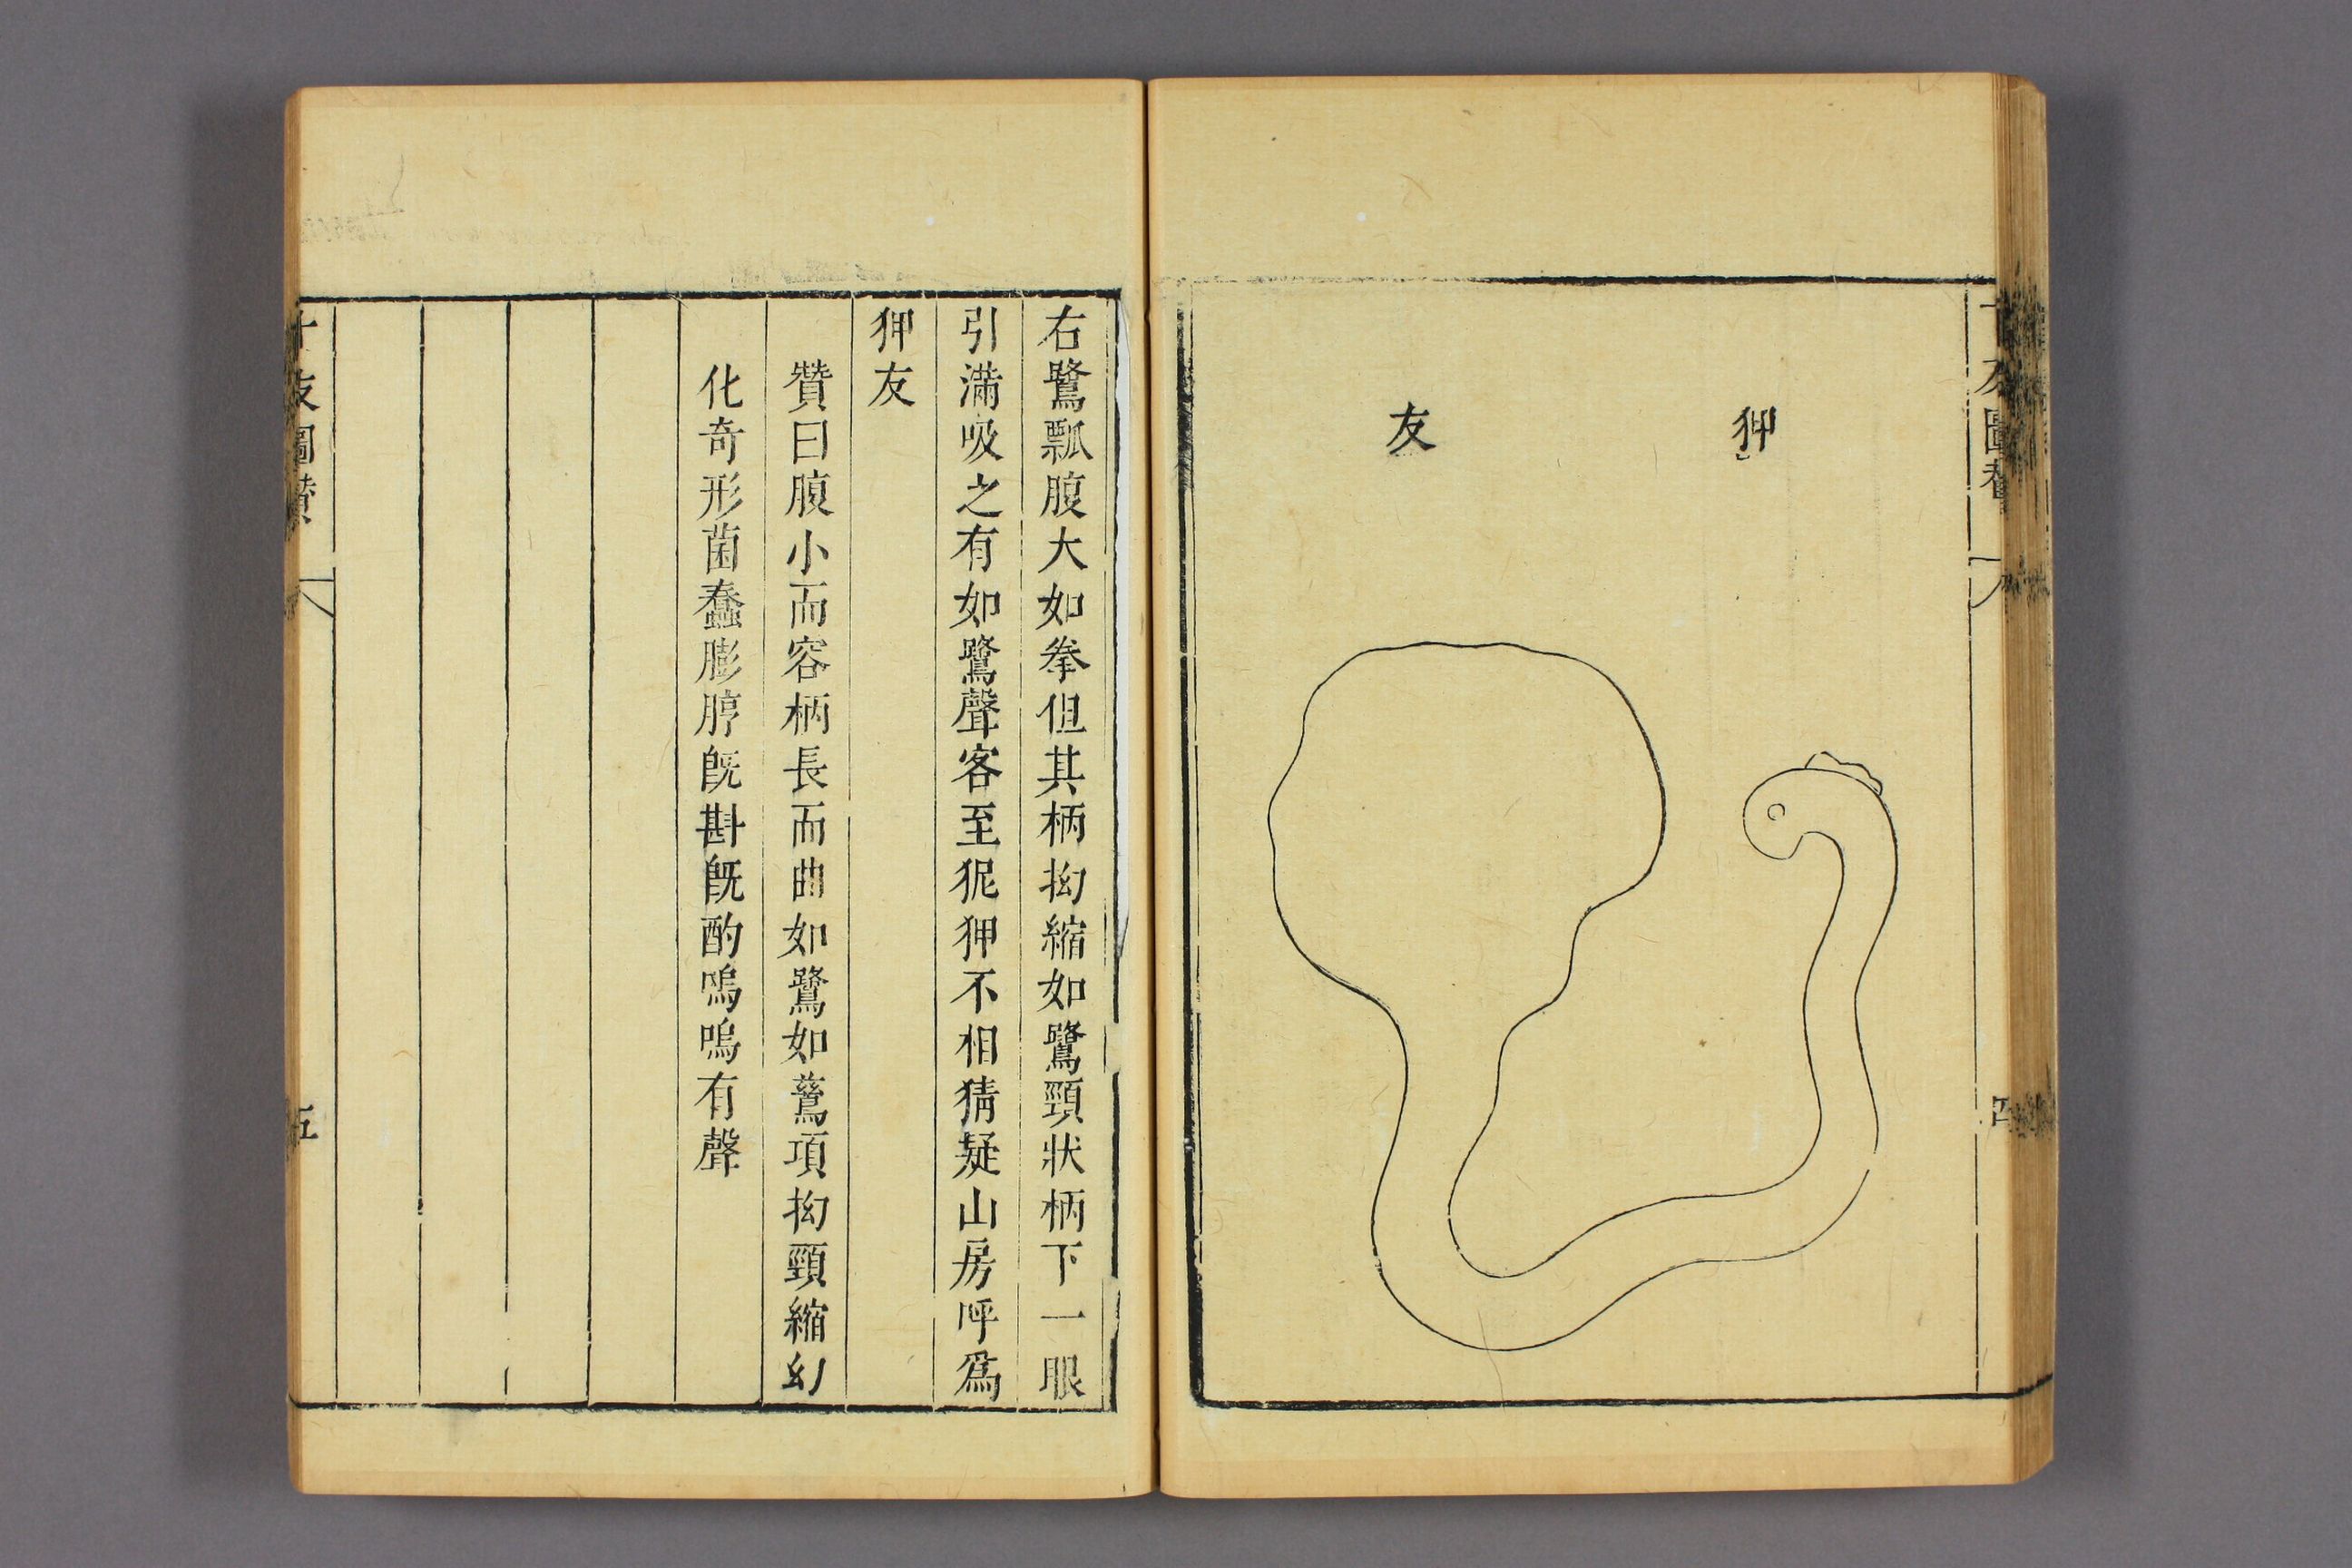 狎友
右鷺瓢腹大如拳但其柄拗縮如鷺頸狀柄下一眼
引滿吸之有如鷺聲客至狎狎不相猜疑山房呼爲
狎友
贊曰腹小而容柄長而曲如鷺如鶿項拗頸縮幻
化奇形菌蠢膨脝旣斟旣酌嗚嗚有聲
十友圖贊
五